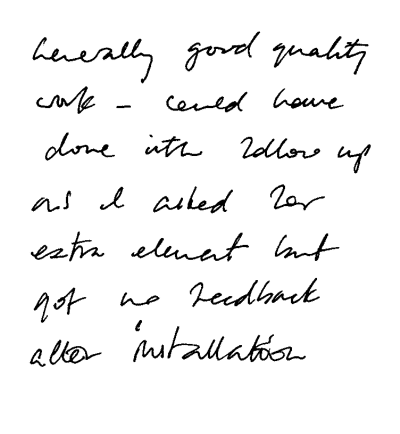 Generally good quality
work - could have
done with follow up
as I asked for
extra element but
got no feedback
after installation